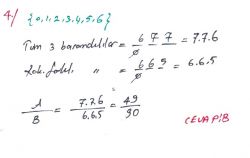 4/ {0,1,2,3,4,5,6}
Tüm 3 basamaklılar = 6 7 7 = 7.7.6
0
Rak. farklı " = 6 6 5 = 6.6.5
0
A/B = 7.7.6/6.6.5 = 49/30
CEVAP:B